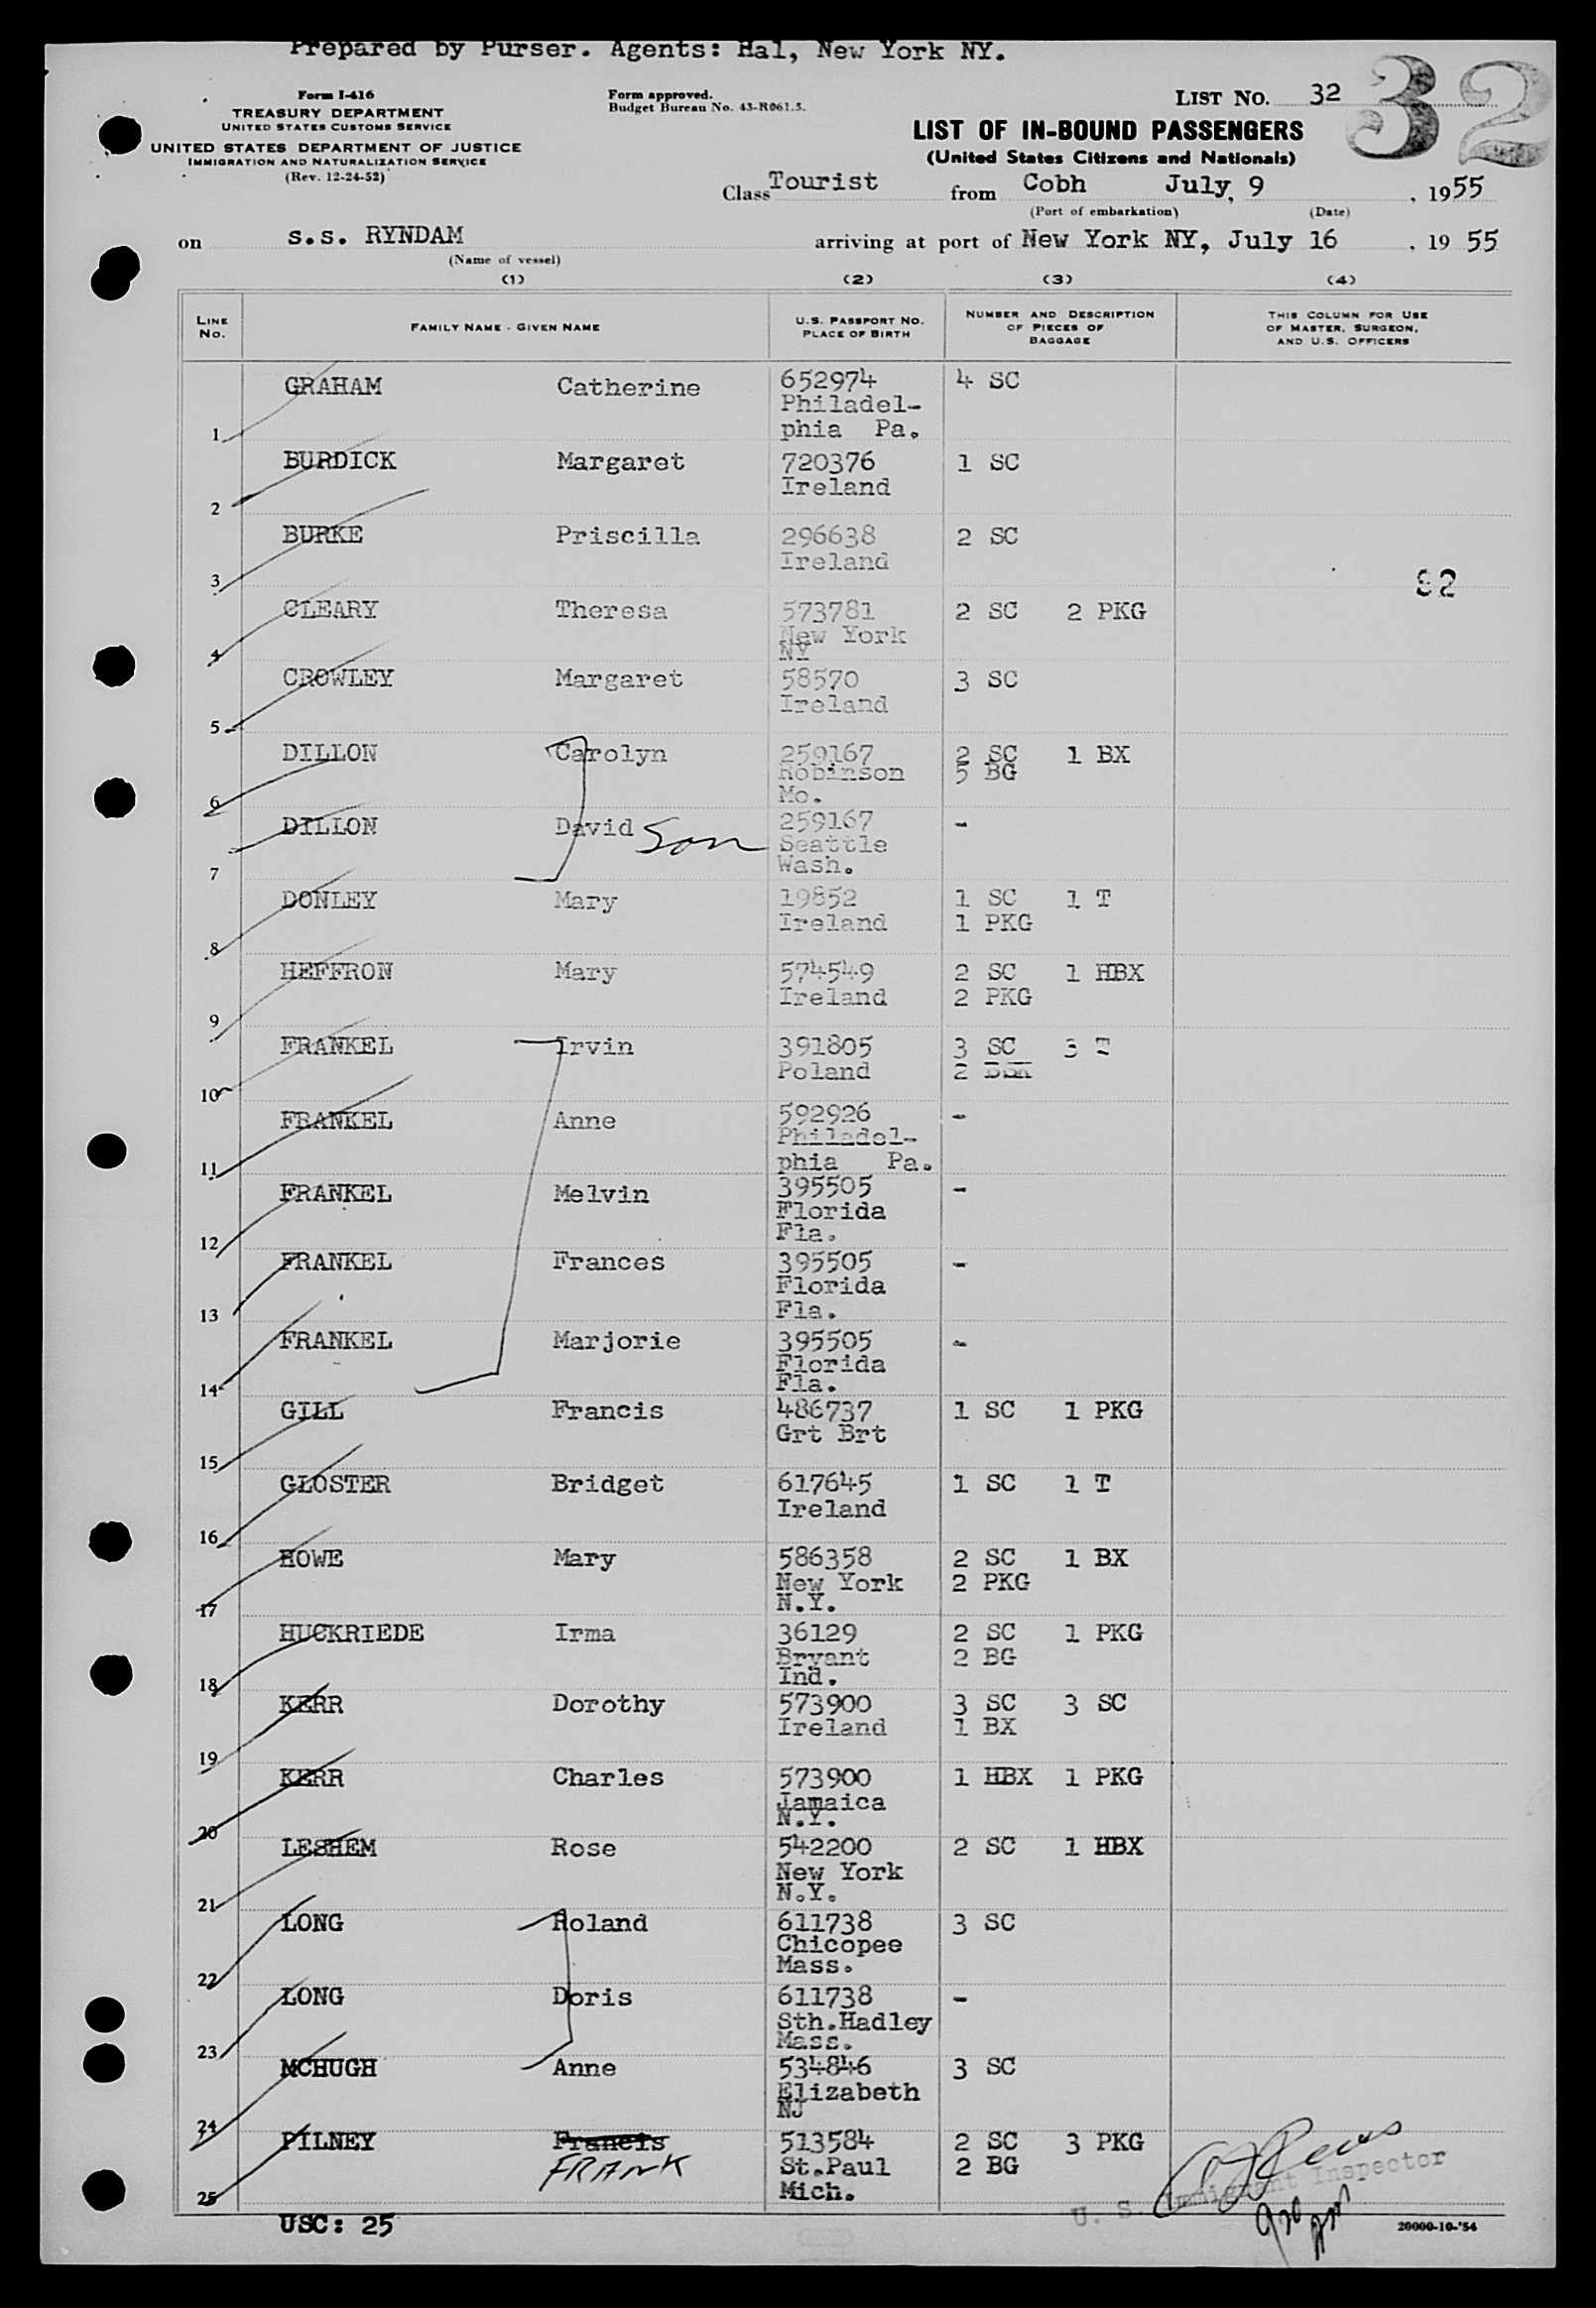 Prepared by Purser. Agents: Hal, New York NY.
Form I-416
TREASURY DEPARTMENT
UNITED STATES CUSTOMS SERVICE
UNITED STATES DEPARTMENT OF JUSTICE
IMMIGRATION AND NATURALIZATION SERVICE
(Rev. 12-24-52)
Form approved.
Budget Bureau No. 43-R061.5.
LIST NO. 32
32
LIST OF IN-BOUND PASSENGERS
(United States Citizens and Nationals)
Class Tourist from Cobh July, 9, 1955
(Port of embarkation) (Date)
on s.s. RYNDAM arriving at port of New York NY, July 16, 1955
(Name of vessel)
(1) (2) (3) (4)
LINE No. FAMILY NAME - GIVEN NAME U.S. PASSPORT NO. PLACE OF BIRTH NUMBER AND DESCRIPTION OF PIECES OF BAGGAGE THIS COLUMN FOR USE OF MASTER, SURGEON, AND U.S. OFFICERS
GRAHAM Catherine 652974 4 SC
Philadel-
1 phia Pa.
BURDICK Margaret 720376 1 SC
Ireland
2
BURKE Priscilla 296638 2 SC
Ireland
3
92
CLEARY Theresa 573781 2 SC 2 PKG
New York
4 NY
CROWLEY Margaret 58570 3 SC
Ireland
5
DILLON Carolyn 259167 2 SC 1 BX
Robinson 5 BG
6 Mo.
DILLON David Son 259167 -
Seattle
7 Wash.
DONLEY Mary 19852 1 SC 1 T
Ireland 1 PKG
8
HEFFRON Mary 574549 2 SC 1 HBX
Ireland 2 PKG
9
FRANKEL Irvin 391805 3 SC 3 T
Poland 2
10
FRANKEL Anne 592926 -
Philadel-
11 phia Pa.
FRANKEL Melvin 395505 -
Florida
12 Fla.
FRANKEL Frances 395505 -
Florida
13 Fla.
FRANKEL Marjorie 395505 -
Florida
14 Fla.
GILL Francis 486737 1 SC 1 PKG
Grt Brt
15
GLOSTER Bridget 617645 1 SC 1 T
Ireland
16
HOWE Mary 586358 2 SC 1 BX
New York 2 PKG
17 N.Y.
HUCKRIEDE Irma 36129 2 SC 1 PKG
Bryant 2 BG
18 Ind.
KERR Dorothy 573900 3 SC 3 SC
Ireland 1 BX
19
KERR Charles 573900 1 HBX 1 PKG
Jamaica
20 N.Y.
LESHEM Rose 542200 2 SC 1 HBX
New York
21 N.Y.
LONG Roland 611738 3 SC
Chicopee
22 Mass.
LONG Doris 611738 -
Sth.Hadley
23 Mass.
MCHUGH Anne 534846 3 SC
Elizabeth
24 NJ
PILNEY Francis 513584 2 SC 3 PKG
FRANK St.Paul 2 BG
25 Mich.
U. S. Immigrant Inspector
USC: 25
20000-10-'54